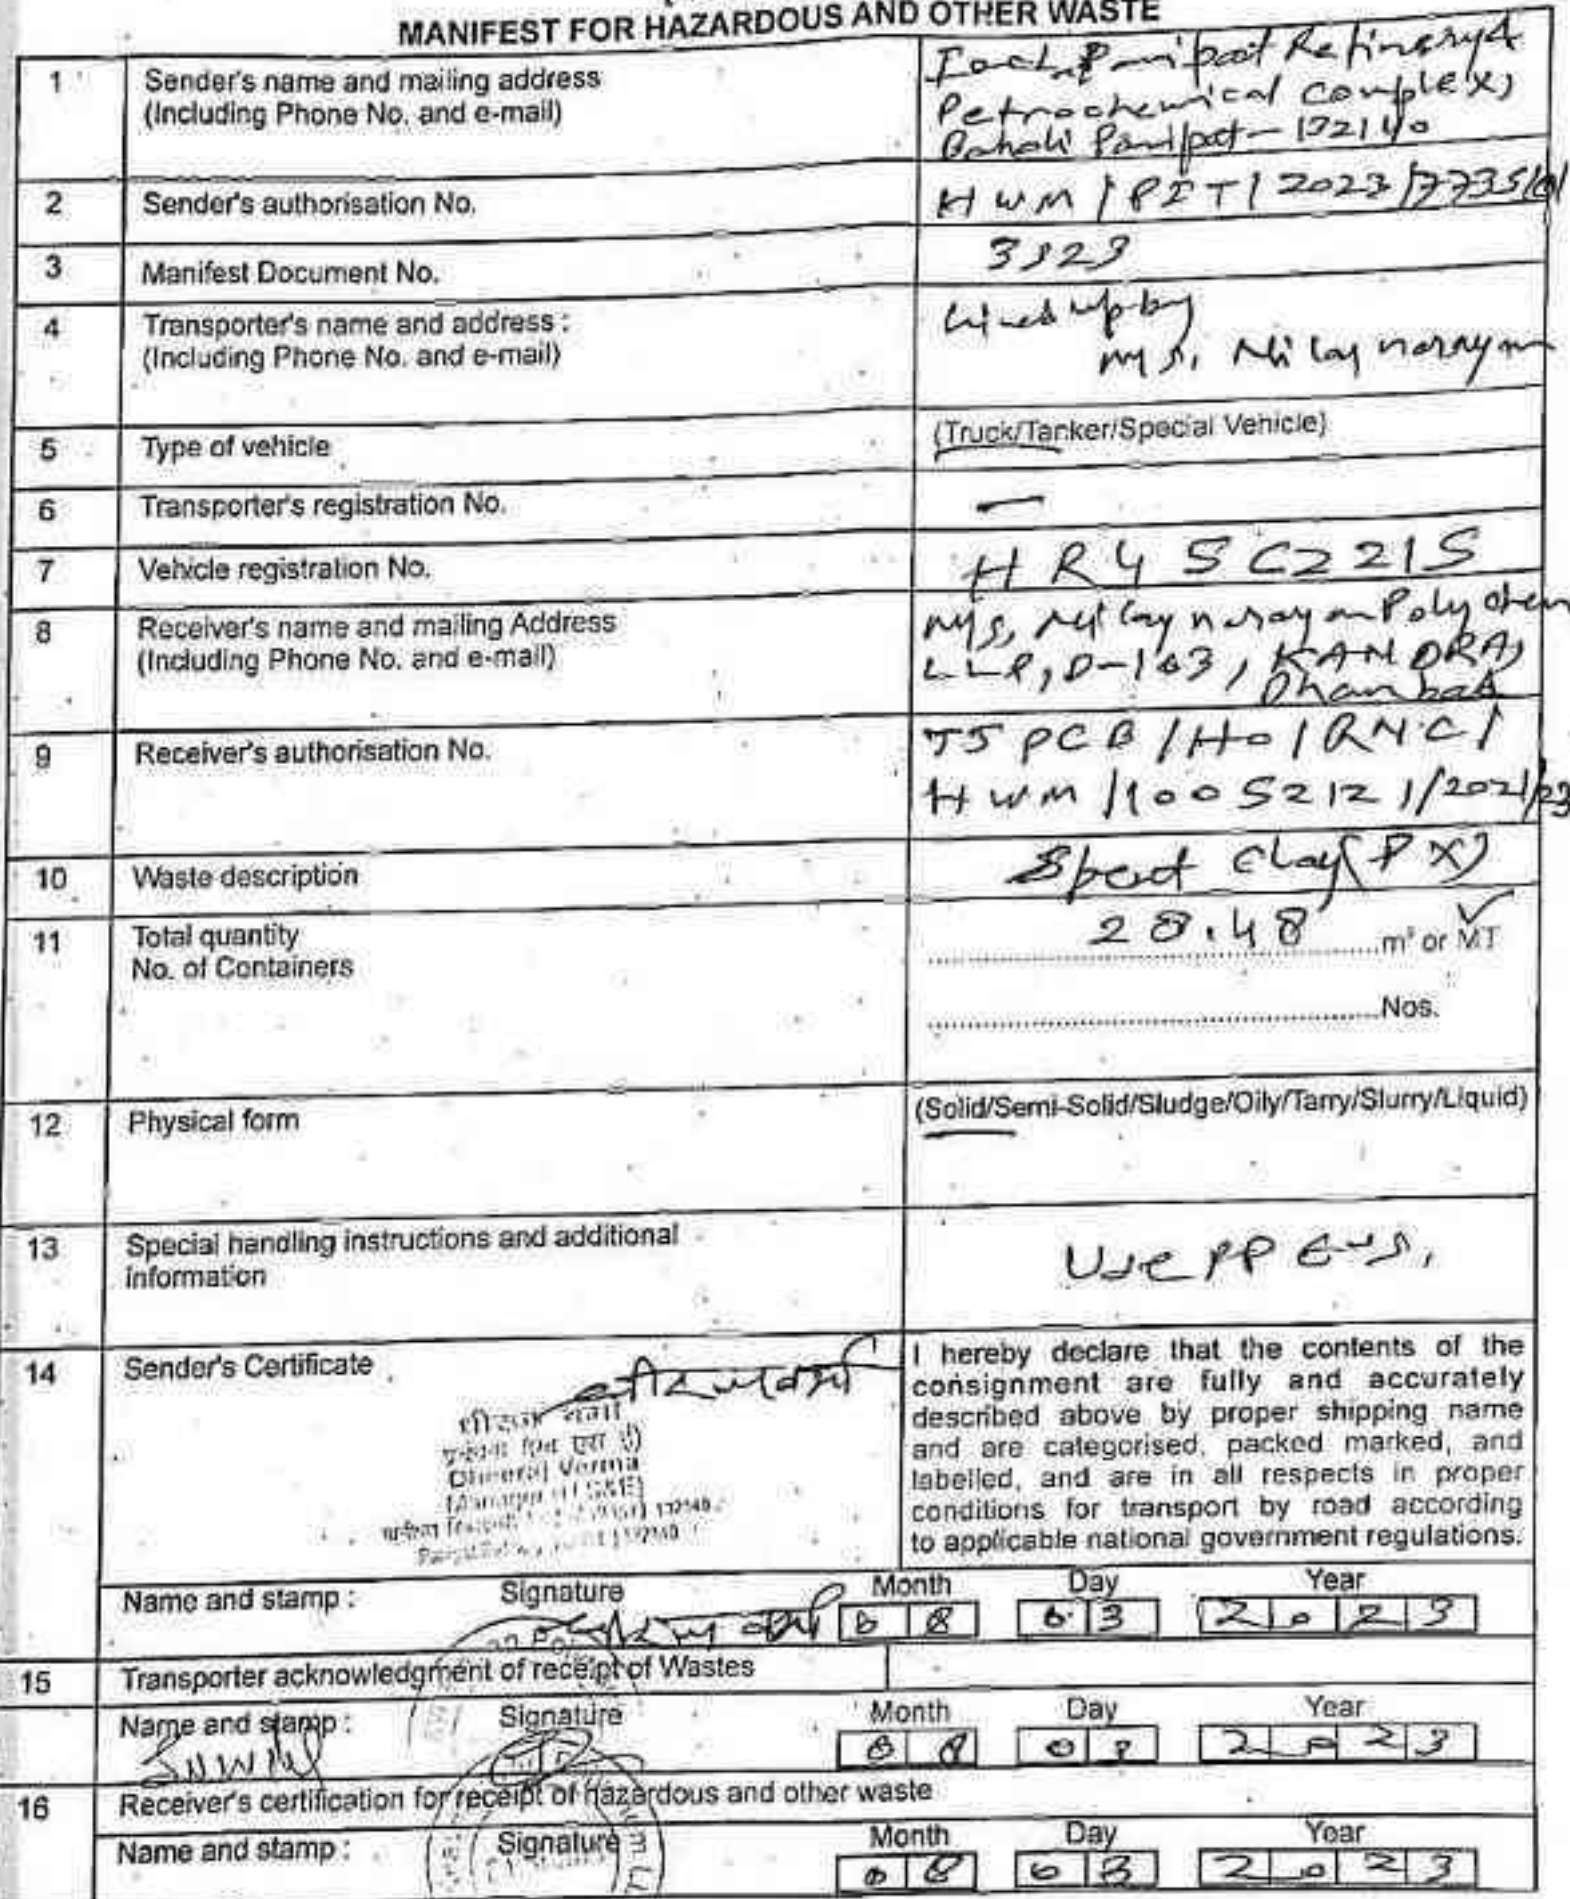 MANIFEST FOR HAZARDOUS AND OTHER WASTE
1 Sender's name and mailing address
(Including Phone No. and e-mail)
Panipat Refinery &
Petrochemical Complex,
Baholi Panipat - 132140
2 Sender's authorisation No.
HWM / PIT / 2023 /7735/
3 Manifest Document No.
3323
4 Transporter's name and address :
(Including Phone No. and e-mail)
Lined up by
M/s, Nilaynarayan
5 Type of vehicle
(Truck/Tanker/Special Vehicle)
6 Transporter's registration No.
—
7 Vehicle registration No.
HR45C2215
8 Receiver's name and mailing Address
(Including Phone No. and e-mail)
M/s, Nilaynarayan Polychem
LLP, D-103, KANDRA,
Dhanbad
9 Receiver's authorisation No.
JSPCB/HO/RNC/
HWM/10052121/2021/23
10 Waste description
Spent Clay (PX)
11 Total quantity
No. of Containers
28.48 m³ or MT
Nos.
12 Physical form
(Solid/Semi-Solid/Sludge/Oily/Tarry/Slurry/Liquid)
13 Special handling instructions and additional
information
Use PPE's.
14 Sender's Certificate
I hereby declare that the contents of the
consignment are fully and accurately
described above by proper shipping name
and are categorised, packed marked, and
labelled, and are in all respects in proper
conditions for transport by road according
to applicable national government regulations.
धीरज वर्मा
Dheeraj Verma
Name and stamp : Signature Month Day Year
08 03 2023
15 Transporter acknowledgment of receipt of Wastes
Name and stamp : Signature Month Day Year
08 03 2023
16 Receiver's certification for receipt of hazardous and other waste
Name and stamp : Signature Month Day Year
08 03 2023